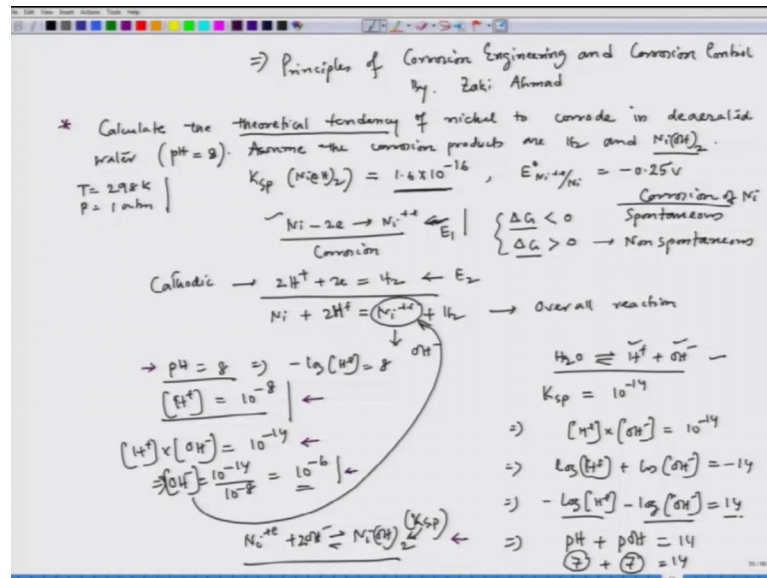 File Edit View Insert Actions Tools Help
⇒ Principles of Corrosion Engineering and Corrosion Control
By. Zaki Ahmad
* Calculate the theoretical tendency of nickel to corrode in deaerated
water (pH = 8). Assume the corrosion products are H2 and Ni(OH)2.
T = 298K
P = 1 atm
Ksp (Ni(OH)2) = 1.6 × 10^-16 , E°Ni+e/Ni = -0.25 V
Corrosion of Ni
Ni - 2e → Ni+e ← E1
Corrosion
ΔG < 0 Spontaneous
ΔG > 0 → Non spontaneous
Cathodic → 2H+ + 2e = H2 ← E2
Ni + 2H+ = Ni+e + H2 → Overall reaction
↓ OH-
→ pH = 8 ⇒ -log[H+] = 8
[H+] = 10^-8 ←
[H+] × [OH-] = 10^-14 ←
⇒ [OH-] = 10^-14 / 10^-8 = 10^-6 ←
Ni+e + 2OH- ⇌ Ni(OH)2 (Ksp) ←
H2O ⇌ H+ + OH- -
Ksp = 10^-14
⇒ [H+] × [OH-] = 10^-14
⇒ log[H+] + log[OH-] = -14
⇒ -log[H+] - log[OH-] = 14
⇒ pH + pOH = 14
7 + 7 = 14